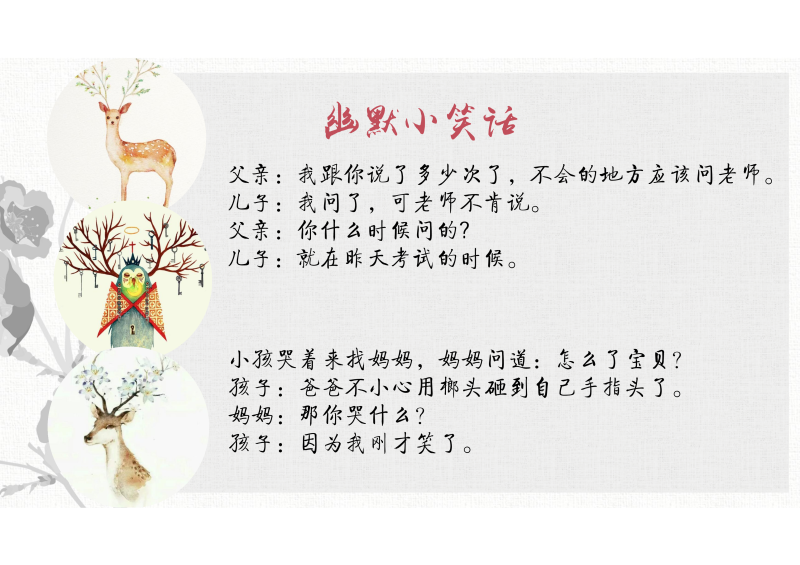 幽默小笑话
父亲：我跟你说了多少次了，不会的地方应该问老师。
儿子：我问了，可老师不肯说。
父亲：你什么时候问的？
儿子：就在昨天考试的时候。
小孩哭着来找妈妈，妈妈问道：怎么了宝贝？
孩子：爸爸不小心用榔头砸到自己手指头了。
妈妈：那你哭什么？
孩子：因为我刚才笑了。